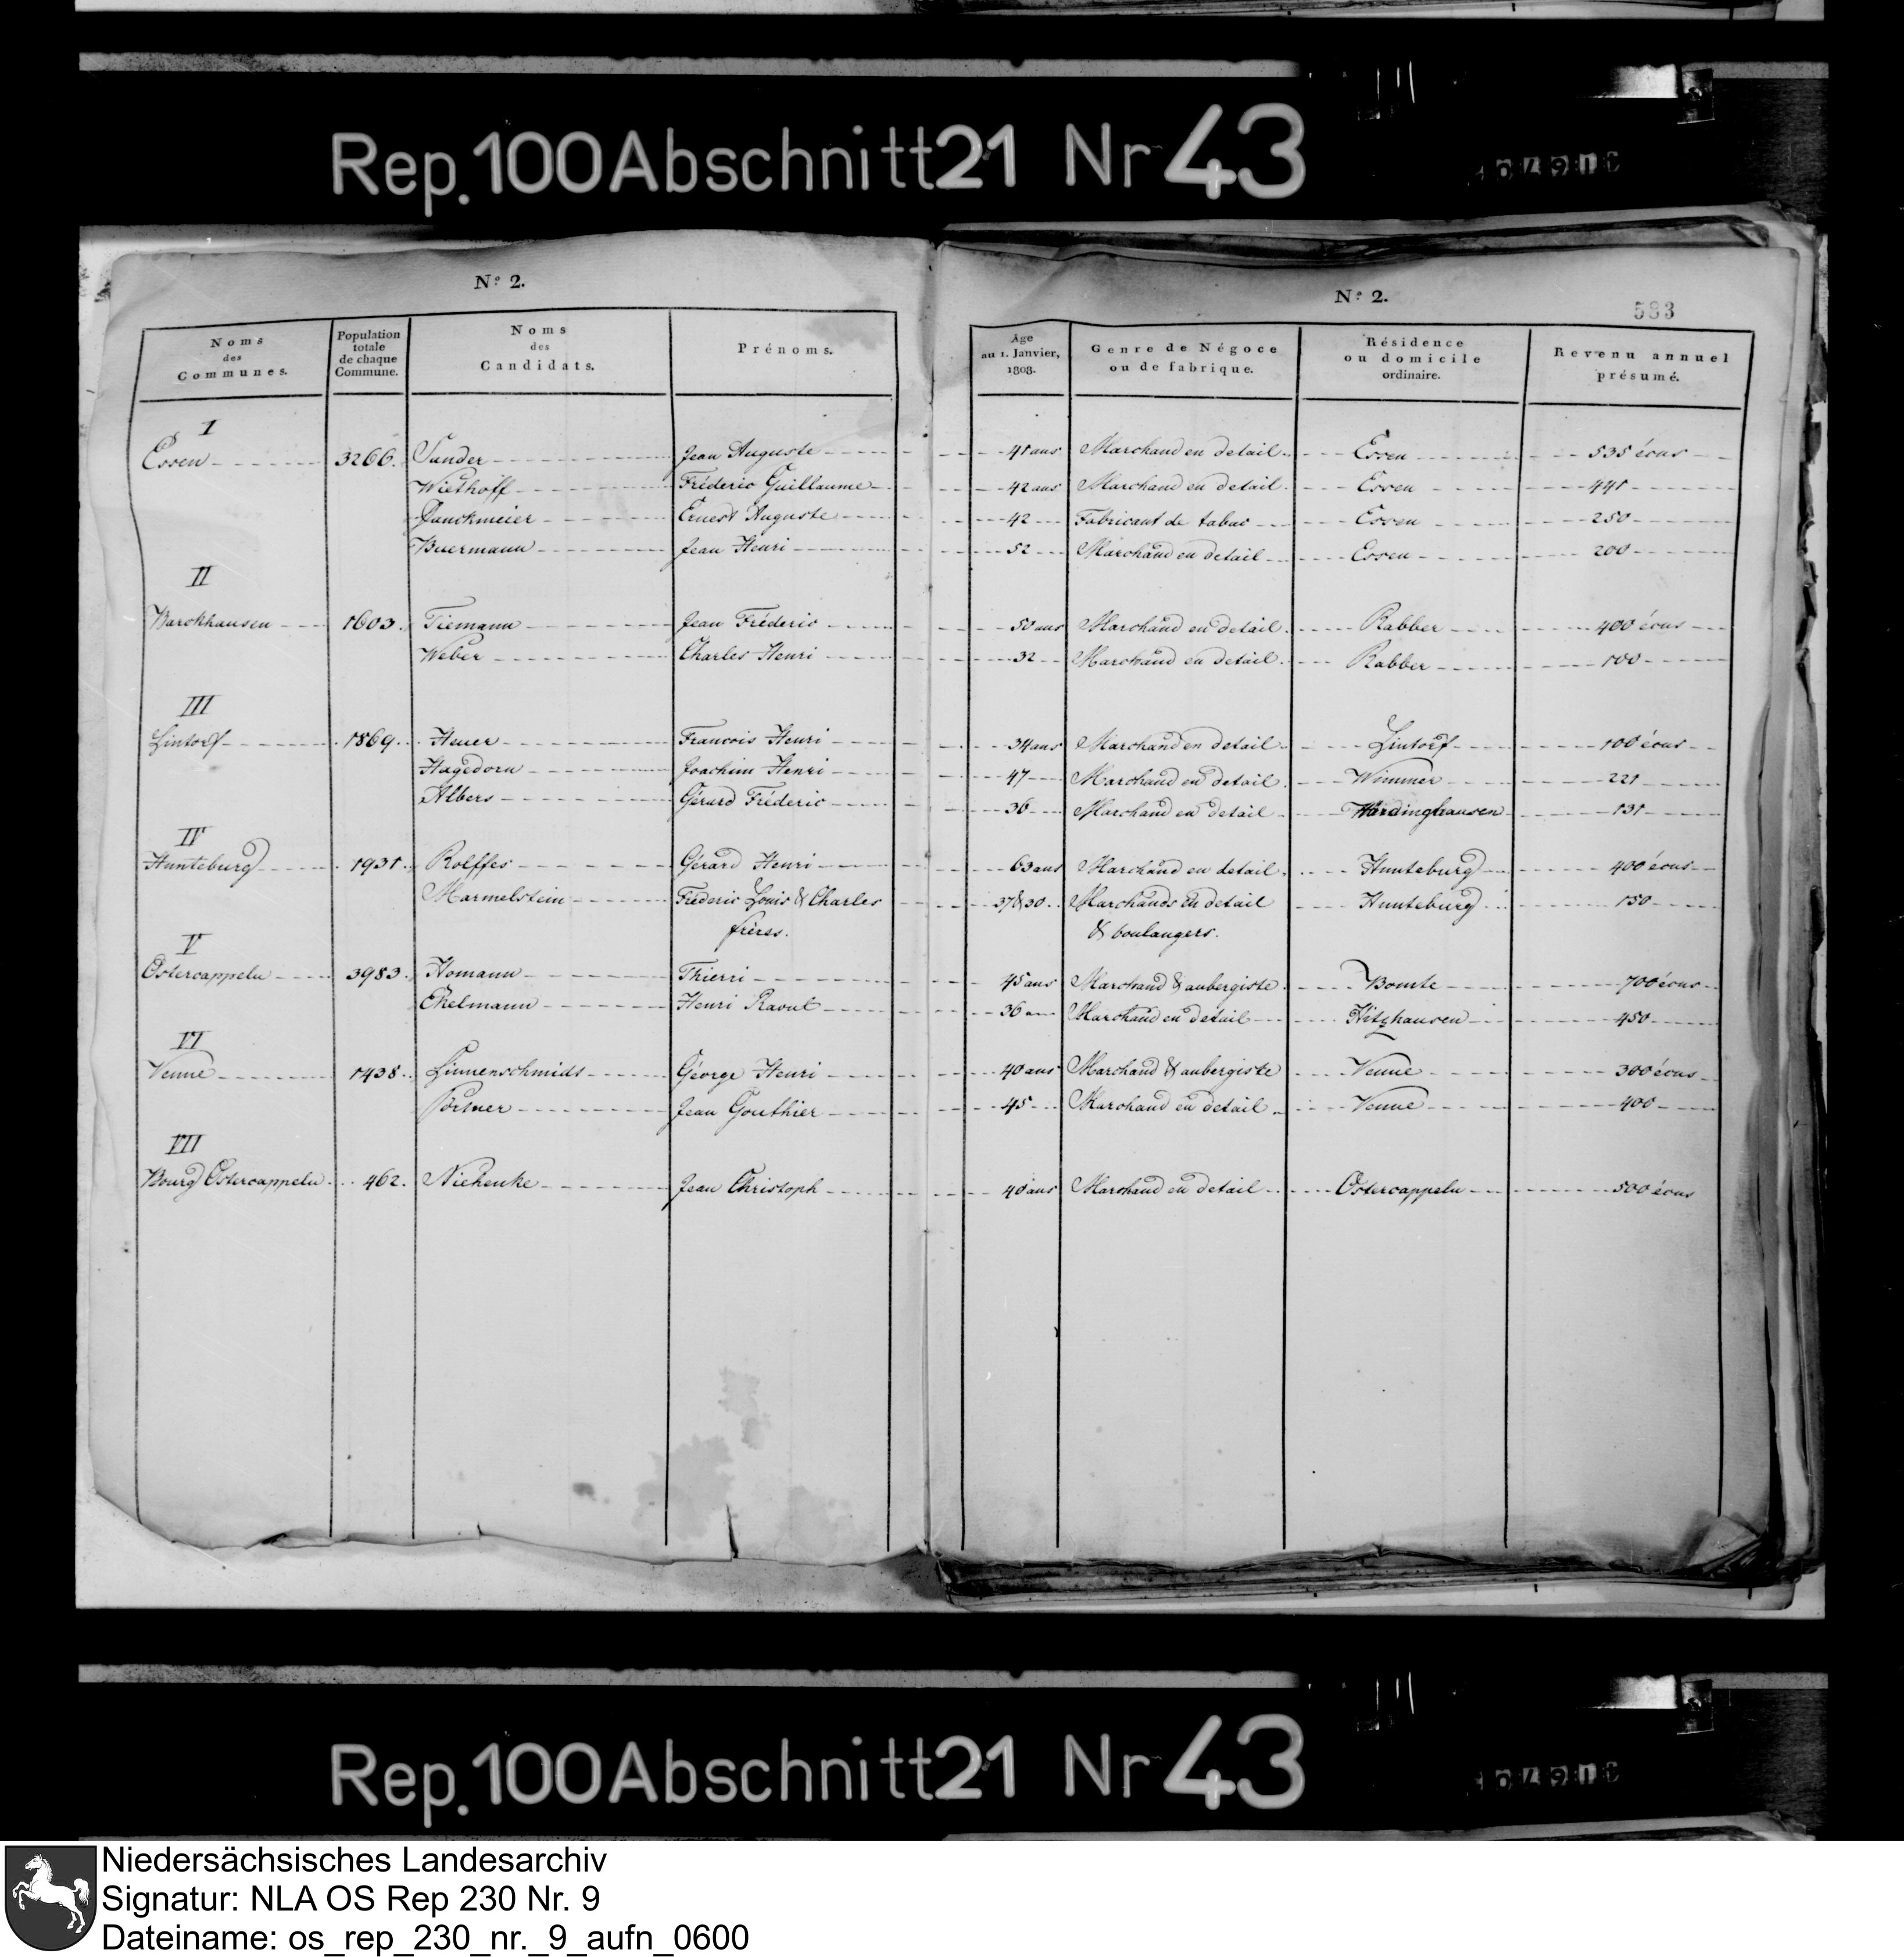 Rep. 100 Abschnitt 21 Nr 43
Nº 2.
Nº 2.
583
Noms des Communes. Population totale de chaque Commune. Noms des Candidats. Prénoms. Age au 1. Janvier, 1808. Genre de Négoce ou de fabrique. Résidence ou domicile ordinaire. Revenu annuel présumé.
I
Essen 3266. Sander Jean Auguste 41 ans Marchand en detail Essen 535 écus
Wiethoff Fréderic Guillaume 42 ans Marchand en detail Essen 441
Danckmeier Ernest Auguste 42 Fabricant de tabac Essen 250
Buermann Jean Henri 52 Marchand en detail Essen 200
II
Barckhausen 1603. Tiemann Jean Fréderic 50 ans Marchand en detail Rabber 400 écus
Weber Charles Henri 32 Marchand en detail Rabber 100
III
Lintorf 1869. Heuer Francois Henri 34 ans Marchand en detail Lintorf 100 écus
Hagedorn Joachim Henri 47 Marchand en detail Wimmer 221
Albers Gérard Fréderic 36 Marchand en detail 131
IV
Hunteburg 1931. Rolffes Gérard Henri 63 ans Marchand en detail Hunteburg 400 écus
Marmelstein Fréderic Louis & Charles 37 & 30 Marchands en detail Hunteburg 150
frères. & boulangers.
V
Ostercappeln 3983. Homann Thierri 45 ans Marchand & aubergiste Bomte 700 écus
Ekelmann Henri Raoul 36 ans Marchand en detail Hitzhausen 450
VI
Venne 1438. Linnenschmidt George Henri 40 ans Marchand & aubergiste Venne 300 écus
Pörtner Jean Gouthier 45 Marchand en detail Venne 400
VII
Bourg Ostercappeln 462. Niehenke Jean Christoph 40 ans Marchand en detail Ostercappeln 500 écus
Rep. 100 Abschnitt 21 Nr 43
Niedersächsisches Landesarchiv
Signatur: NLA OS Rep 230 Nr. 9
Dateiname: os_rep_230_nr._9_aufn_0600